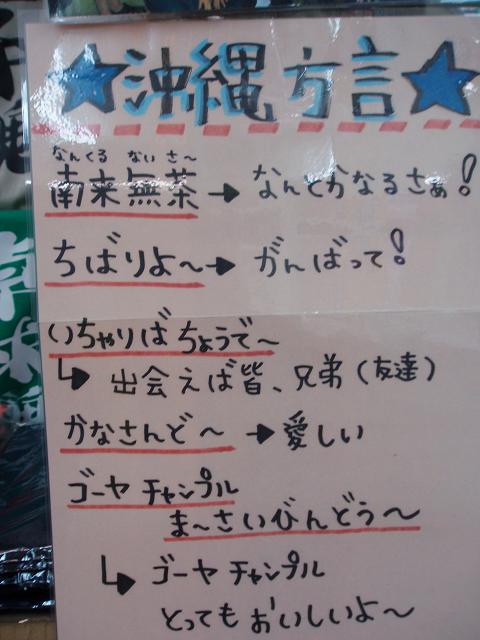 ★沖縄方言★
なんくる ないさ～
南来無茶 → なんとかなるさぁ!
ちばりよ～ → がんばって!
いちゃりばちょうで～
↳ 出会えば皆、兄弟(友達)
かなさんど～ → 愛しい
ゴーヤ チャンプル
ま～さいびんどう～
↳ ゴーヤ チャンプル
とっても おいしいよ～